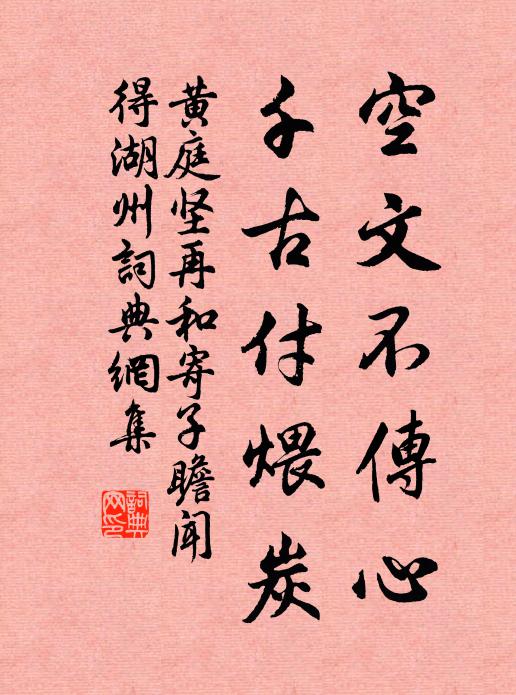 空文不傳心
千古付煨炭
黄庭坚再和寄子瞻聞
得湖州詞典網集
詞典网印